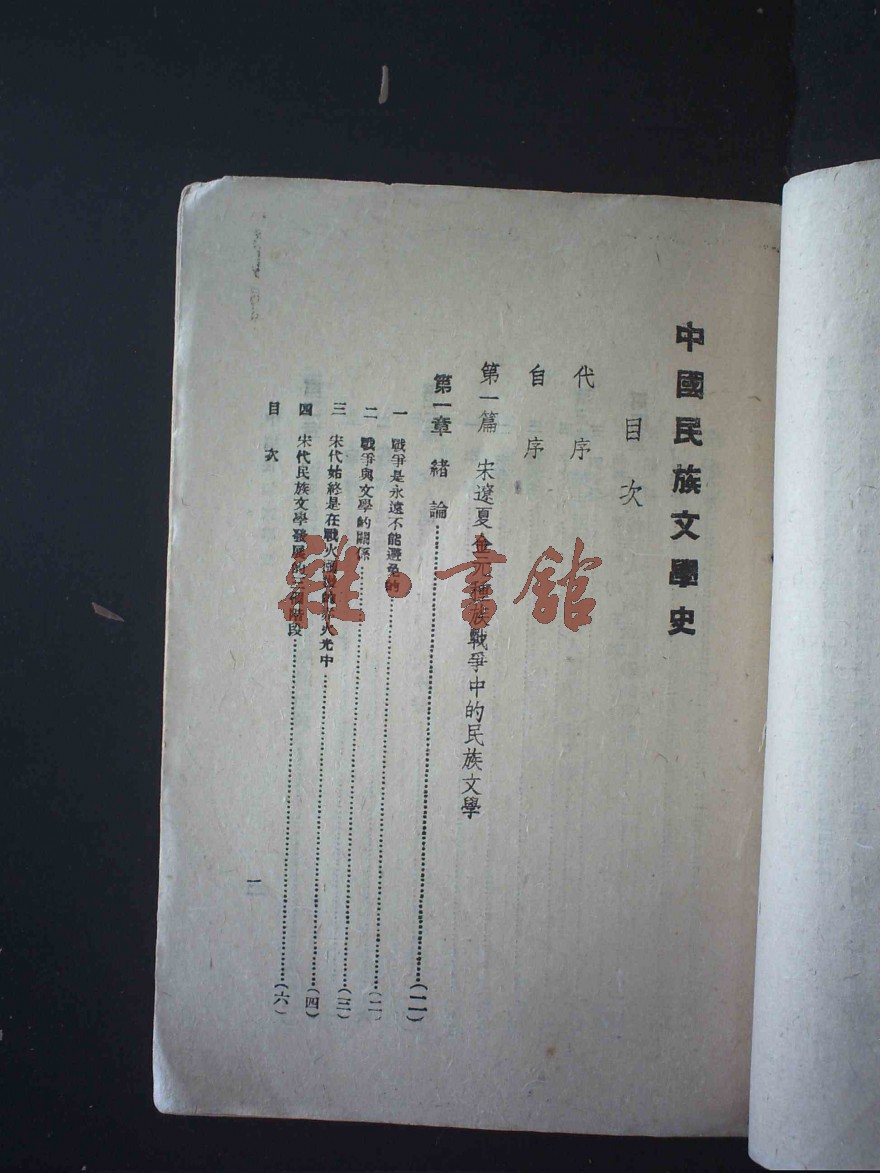 中國民族文學史
目次
代序
自序
第一篇 宋遼夏金元種族戰爭中的民族文學
第一章 緒論……(二)
一 戰爭是永遠不能避免的……(二)
二 戰爭與文學的關係……(三)
三 宋代始終是在戰火 火光中……(四)
四 宋代民族文學發展的三個階段……(六)
目次
一
雜·書館